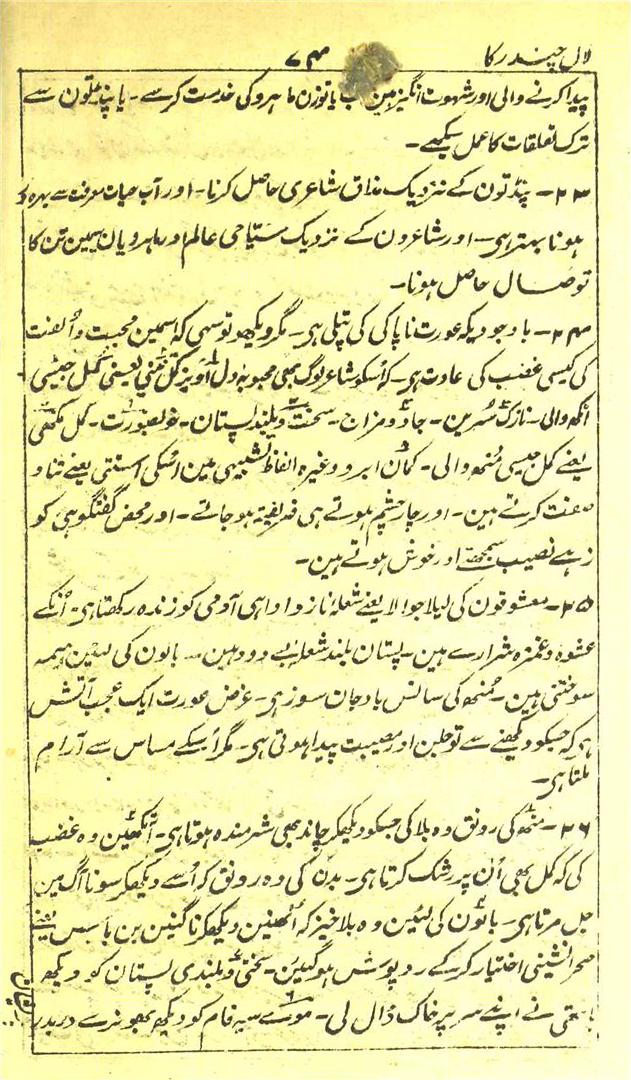 لال چندرکا ۷۴
پیدا کرنے والی اور شہوت انگیز ہین یا توزن ماہرو کی خدمت کرے ۔ یا پنڈتون سے
ترک تعلقات کا عمل سیکھے ۔
۲۳ ۔ پنڈتون کے نزدیک مذاق شاعری حاصل کرنا ۔ اور آب حیات معرفت سے بہرہ
ہونا بہتر ہی ۔ اور شاعرون کے نزدیک سیاحی عالم اور ماہرویان سیمین تن کا
تو صال حاصل ہونا ۔
۲۴ ۔ باوجودیکہ عورت ناپاکی کی پتلی ہی ۔ مگر دیکھو تو سہی کہ اسمین محبت و الفت
کی کیسی غضب کی عادت ہی ۔ کہ اسکو شاعر لوگ بھی محبوبۂ دل آویز کنل نینی یعنی کمل جیسی
آنکھ والی ۔ نازک سرین ۔ جادو مزاج ۔ سخت و بلند پستان ۔ خوبصورت ۔ کمل مکھی
یعنے کمل جیسی مُنھ والی ۔ کمان ابرو وغیرہ الفاظ تشبیہی مین اسکی استتی یعنے ثنا و
صفت کرتے ہین ۔ اور چار چشم ہوتے ہی فریفتہ ہو جاتے ۔ اور محض گفتگو ہی کو
زہے نصیب سمجھتے اور خوش ہوتے ہین ۔
۲۵ ۔ معشوقون کی لیلا جوالا یعنے شعلۂ ناز و ادا ہی آدمی کو زندہ رکھتا ہی ۔ اُنکے
عشوہ و غمزہ شرارے ہین ۔ پستان بلند شعلۂ بے دود ہین ۔ بالون کی لٹین ہیمہ
سوختنی ہین ۔ مُنھ کی سانس باد جان سوز ہی ۔ غرض عورت ایک عجب آتش
ہی کہ جسکو دیکھنے سے تو جلن اور مصیبت پیدا ہوتی ہی ۔ مگر اُسکے مساس سے آرام
ملتا ہی ۔
۲۶ ۔ منھ کی رونق وہ بلا کی جسکو دیکھکر چاند بھی شرمندہ ہوتا ہی ۔ آنکھین وہ غضب
کی کہ کمل بھی اُن پر رشک کرتا ہی ۔ بدن کی وہ رونق کہ اُسے دیکھکر سونا آگ مین
جل مرتا ہی ۔ بالون کی لٹین وہ بلا خیز کہ اُنھین دیکھکر ناگنین بن باسس یعنے
صحرا نشینی اختیار کر کے روپوش ہو گئین ۔ سختی و بلندی پستان کو دیکھ
ہاتھی نے اپنے سر پر خاک ڈال لی ۔ موے سیہ فام کو دیکھ بھونرے دربدر